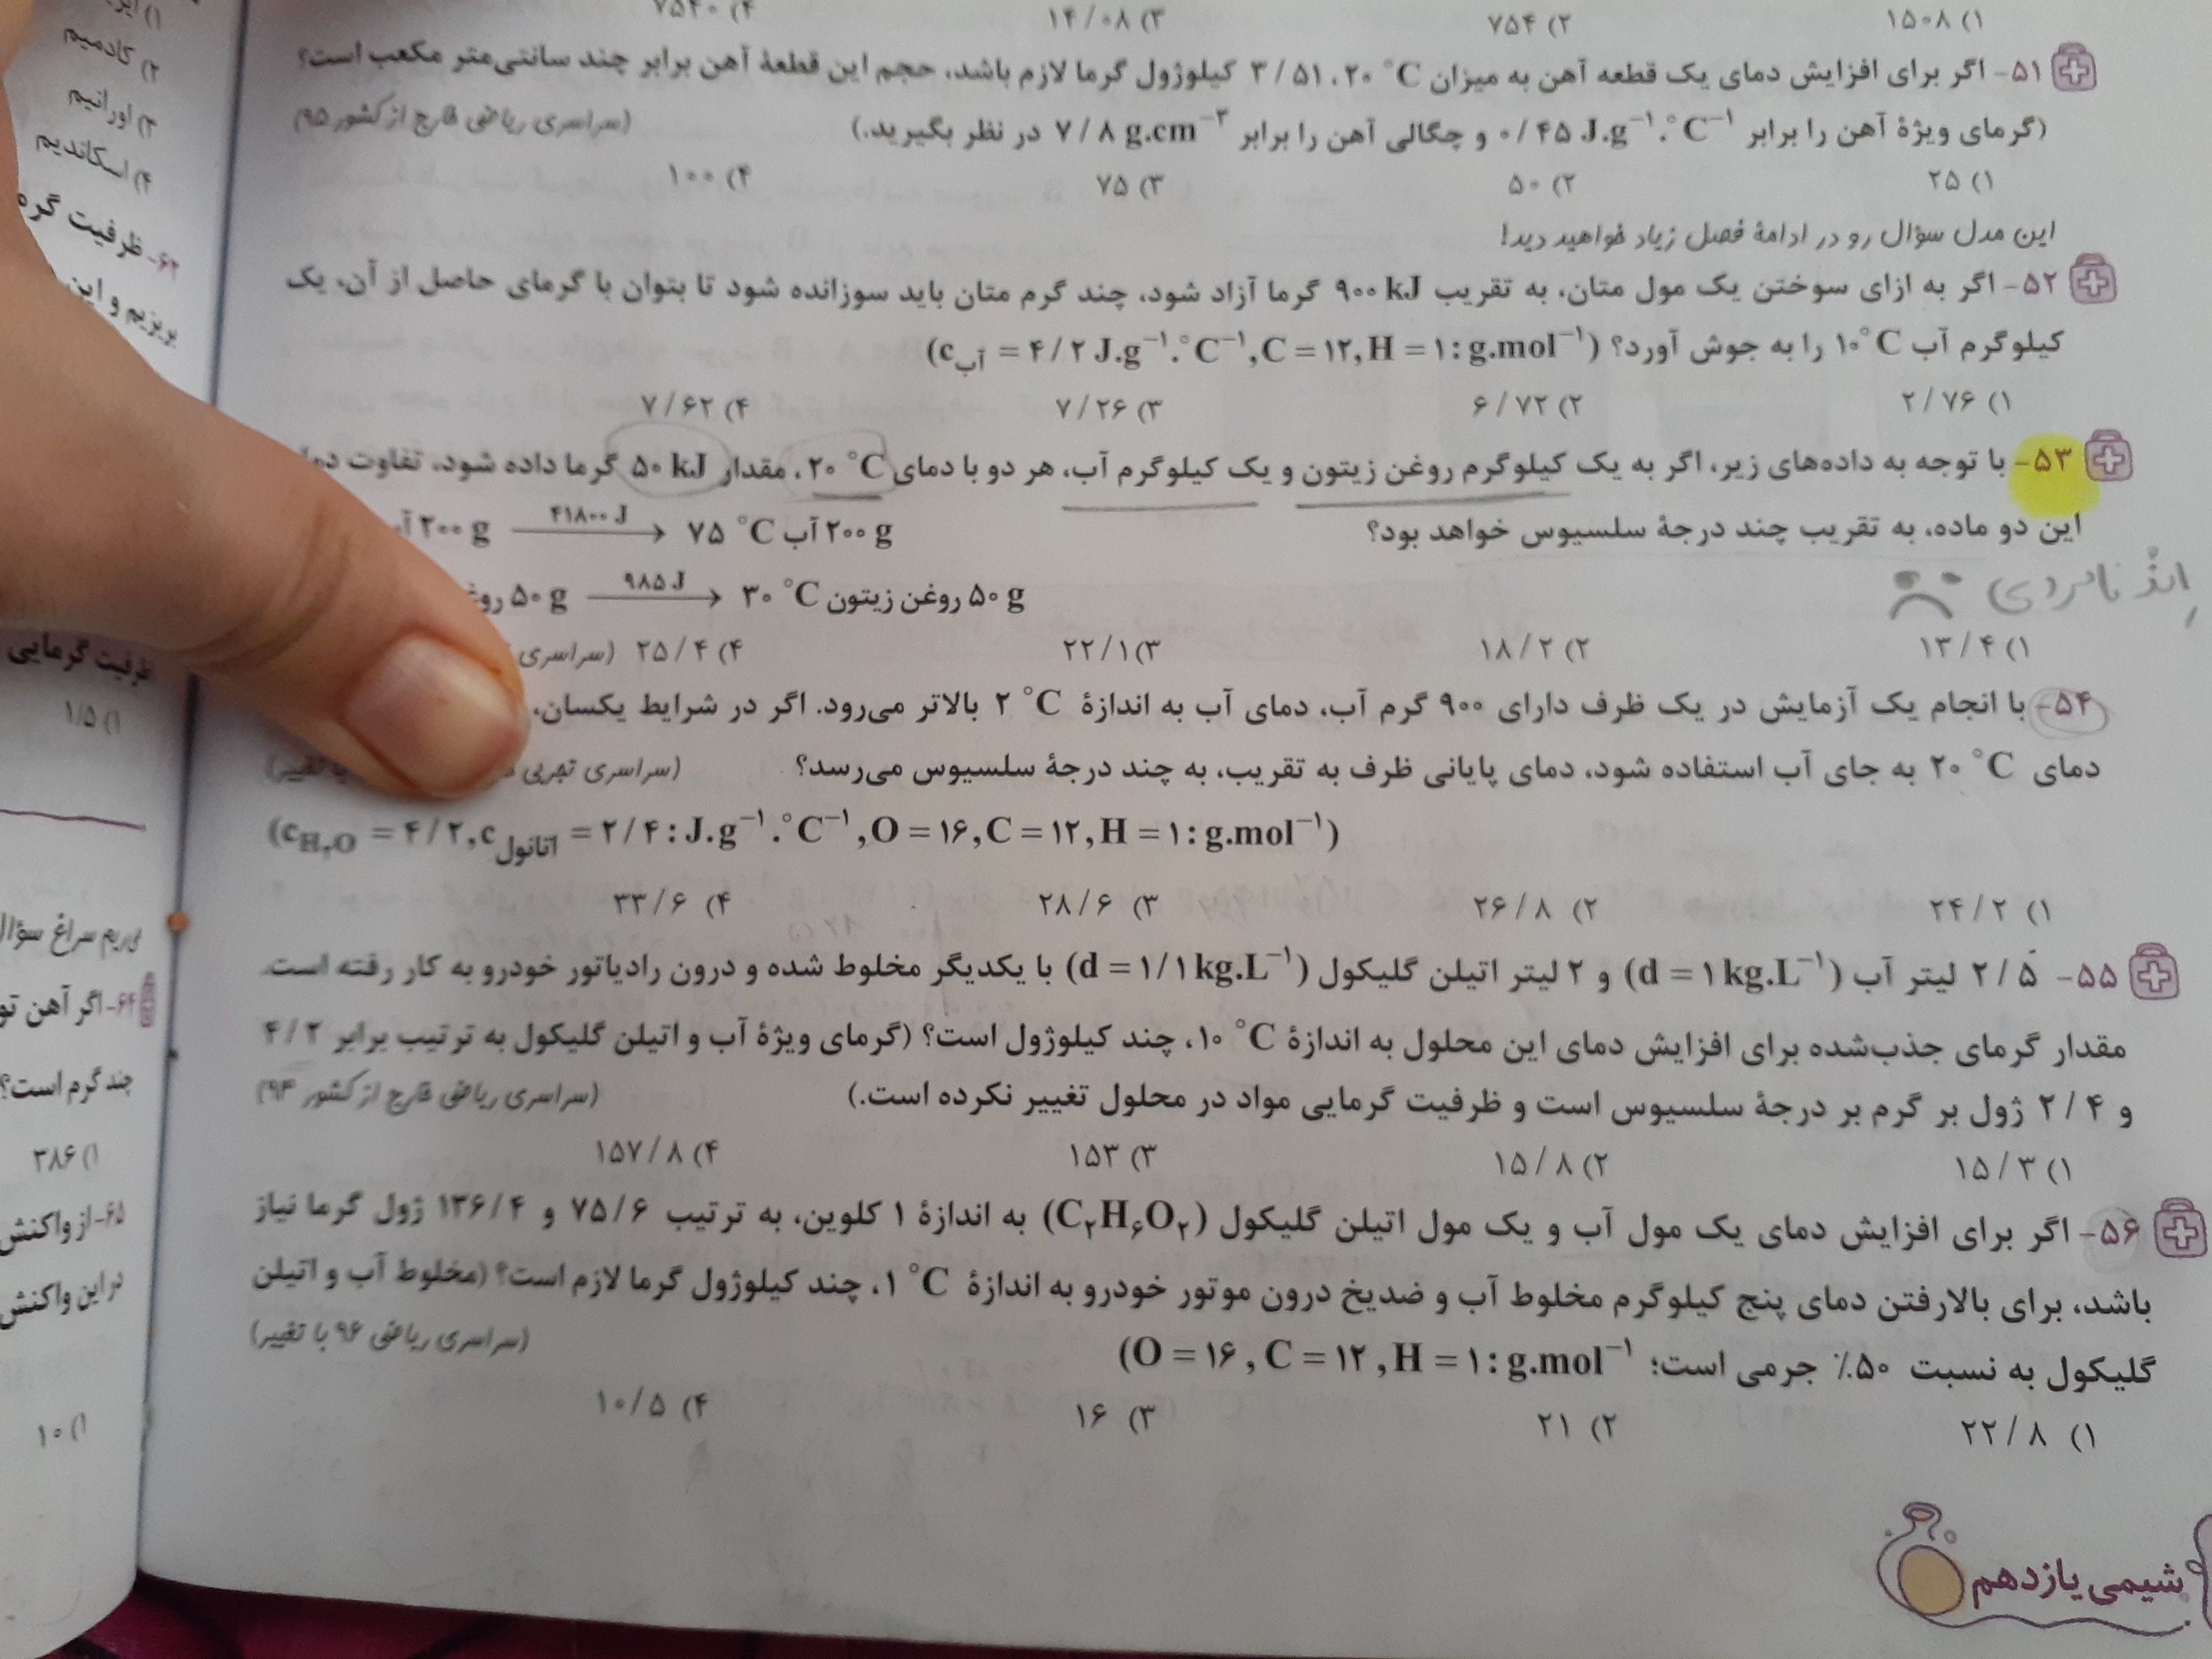 ۱) ۱۵۰۸ ۲) ۷۵۴ ۳) ۱۴/۰۸ ۴) ۷۵۴۰
۵۱- اگر برای افزایش دمای یک قطعه آهن به میزان ۲۰ °C، ۳/۵۱ کیلوژول گرما لازم باشد، حجم این قطعهٔ آهن برابر چند سانتی‌متر مکعب است؟
(گرمای ویژهٔ آهن را برابر ۰/۴۵ J.g⁻¹.°C⁻¹ و چگالی آهن را برابر ۷/۸ g.cm⁻³ در نظر بگیرید.) (سراسری ریاضی خارج از کشور ۹۵)
۱) ۲۵ ۲) ۵۰ ۳) ۷۵ ۴) ۱۰۰
این مدل سؤال رو در ادامهٔ فصل زیاد خواهید دید!
۵۲- اگر به ازای سوختن یک مول متان، به تقریب ۹۰۰ kJ گرما آزاد شود، چند گرم متان باید سوزانده شود تا بتوان با گرمای حاصل از آن، یک
کیلوگرم آب ۱۰°C را به جوش آورد؟ (c آب = ۴/۲ J.g⁻¹.°C⁻¹, C = ۱۲, H = ۱ : g.mol⁻¹)
۱) ۲/۷۶ ۲) ۶/۷۲ ۳) ۷/۲۶ ۴) ۷/۶۲
۵۳- با توجه به داده‌های زیر، اگر به یک کیلوگرم روغن زیتون و یک کیلوگرم آب، هر دو با دمای ۲۰ °C، مقدار ۵۰ kJ گرما داده شود، تفاوت
این دو ماده، به تقریب چند درجهٔ سلسیوس خواهد بود؟
۲۰۰ g آب ۷۵ °C ← ۴۱۸۰۰ J ۲۰۰ g
۵۰ g روغن زیتون ۳۰ °C ← ۹۸۵ J ۵۰ g
۱) ۱۳/۴ ۲) ۱۸/۲ ۳) ۲۲/۱ ۴) ۲۵/۴ (سراسری
۵۴- با انجام یک آزمایش در یک ظرف دارای ۹۰۰ گرم آب، دمای آب به اندازهٔ ۲ °C بالاتر می‌رود. اگر در شرایط یکسان،
دمای ۲۰ °C به جای آب استفاده شود، دمای پایانی ظرف به تقریب، به چند درجهٔ سلسیوس می‌رسد؟ (سراسری تجربی تغییر)
(c H₂O = ۴/۲, c اتانول = ۲/۴ : J.g⁻¹.°C⁻¹, O = ۱۶, C = ۱۲, H = ۱ : g.mol⁻¹)
۱) ۲۴/۲ ۲) ۲۶/۸ ۳) ۲۸/۶ ۴) ۳۳/۶
۵۵- ۲/۵ لیتر آب (d = ۱ kg.L⁻¹) و ۲ لیتر اتیلن گلیکول (d = ۱/۱ kg.L⁻¹) با یکدیگر مخلوط شده و درون رادیاتور خودرو به کار رفته است.
مقدار گرمای جذب‌شده برای افزایش دمای این محلول به اندازهٔ ۱۰ °C، چند کیلوژول است؟ (گرمای ویژهٔ آب و اتیلن گلیکول به ترتیب برابر ۴/۲
و ۲/۴ ژول بر گرم بر درجهٔ سلسیوس است و ظرفیت گرمایی مواد در محلول تغییر نکرده است.) (سراسری ریاضی خارج از کشور ۹۴)
۱) ۱۵/۳ ۲) ۱۵/۸ ۳) ۱۵۳ ۴) ۱۵۷/۸
۵۶- اگر برای افزایش دمای یک مول آب و یک مول اتیلن گلیکول (C₂H₆O₂) به اندازهٔ ۱ کلوین، به ترتیب ۷۵/۶ و ۱۳۶/۴ ژول گرما نیاز
باشد، برای بالارفتن دمای پنج کیلوگرم مخلوط آب و ضدیخ درون موتور خودرو به اندازهٔ ۱ °C، چند کیلوژول گرما لازم است؟ (مخلوط آب و اتیلن
گلیکول به نسبت ۵۰٪ جرمی است؛ O = ۱۶, C = ۱۲, H = ۱ : g.mol⁻¹) (سراسری ریاضی ۹۶ با تغییر)
۱) ۲۲/۸ ۲) ۲۱ ۳) ۱۶ ۴) ۱۰/۵
شیمی یازدهم
۲) کادمیم
۳) اورانیم
۴) اسکاندیم
۶۲- ظرفیت
بریزیم و این
ظرفیت گرمایی
۱) ۱/۵
می‌ریم سراغ سؤال
۶۴- اگر آهن
چند گرم است؟
۱) ۳۸۶
۶۵- از واکنش
در این واکنش
۱) ۱۰